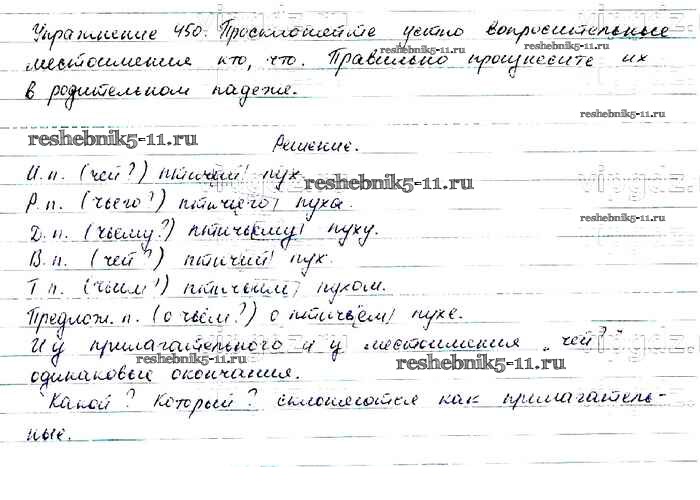 Упражнение 450. Просклоняйте устно вопросительные
reshebnik5-11.ru
местоимения кто, что. Правильно произнесите их
в родительном падеже.
reshebnik5-11.ru
reshebnik5-11.ru
Решение.
И.п. (чей?) птичий пух.
reshebnik5-11.ru
vipgdz
Р.п. (чьего?) птичьего пуха.
reshebnik5-11.ru
Д.п. (чьему?) птичьему пуху.
В.п. (чей?) птичий пух.
Т.п. (чьим?) птичьим пухом.
Предлож.п. (о чьём?) о птичьем пухе.
И у прилагательного и у местоимения „чей?"
reshebnik5-11.ru
reshebnik5-11.ru
одинаковые окончания.
Какой? Который? склоняются как прилагатель-
ные.
reshebnik5-11.ru